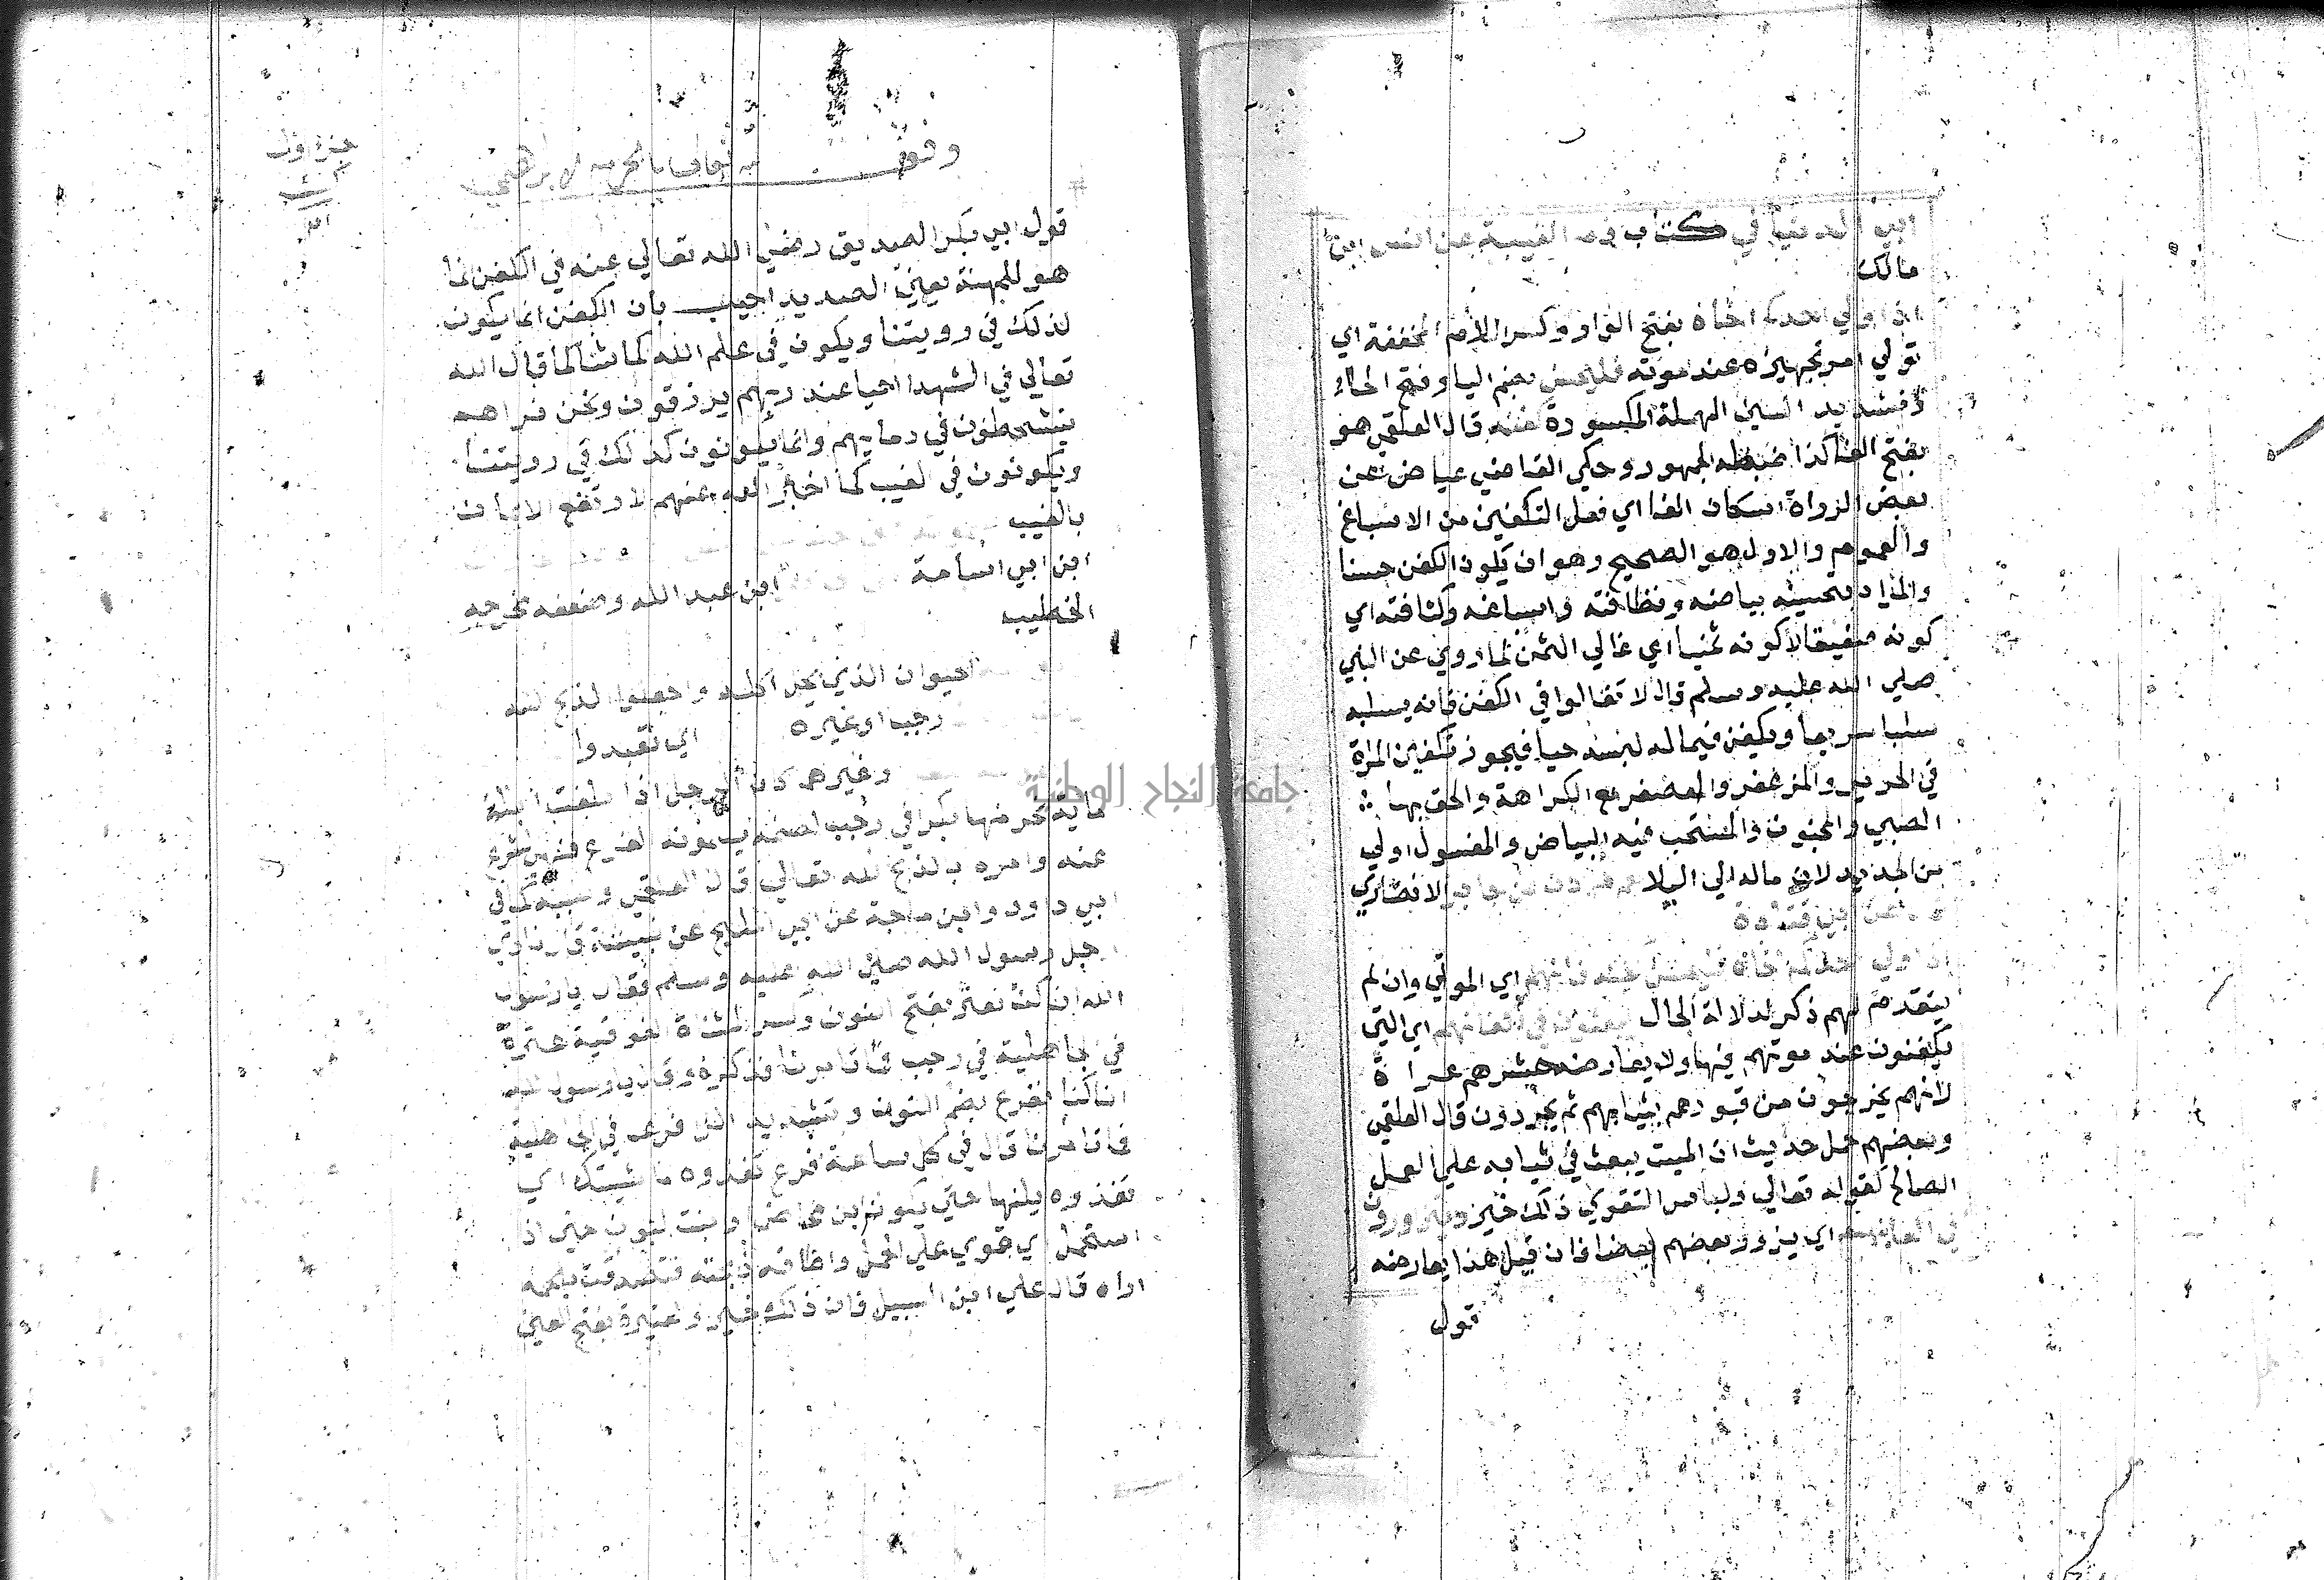 ابي الدنيا في كتاب ذم الغيبة عن انس ابن
مالك
اذا ولي احدكم اخاه بفتح الواو وكسر اللام المخففة اي
تولي امر تجهيزه عند موته فليحسن بضم اليا وفتح الحاء
وتشديد السين المهملة المكسورة كفنه قال العلقمي هو
بفتح الفا كذا ضبطه الجمهور وحكي القاضي عياض عن
بعض الرواة اسكان الفا اي فعل التكفين من الاسباغ
والعموم والاول هو الصحيح وهو ان يكون الكفن حسنا
والمراد بتحسينه بياضه ونظافته واسباغه وكثافته اي
كونه صفيقا لا كونه ثمينا اي غالي الثمن لما روي عن النبي
صلي الله عليه وسلم قال لا تغالوا في الكفن فانه يسلبه
سلبا سريعا ويكفن فيما له لبسه حيا فيجوز تكفين المراة
في الحرير والمزعفر والمعصفر مع الكراهة والحق بها
الصبي والمجنون والمستحب فيه البياض والمغسول اولي
من الجديد لان ماله الي البلا الانصاري
ابي قتادة
اذا ولي احدكم اخاه فليحسن كفنه فانهم اي الموتي وان لم
يتقدم لهم ذكر لدلالة الحال يبعثون في اكفانهم اي التي
يكفنون عند موتهم فيها ولا يعارضه حشرهم عراة
لانهم يخرجون من قبورهم بثيابهم ثم يجردون قال العلقمي
وبعضهم حمل حديث ان الميت يبعث في ثيابه علي العمل
الصالح لقوله تعالي ولباس التقوي ذلك خير ويتزاورون
في اكفانهم اي يزور بعضهم بعضا فان قيل هذا يعارضه
قول
جامعة النجاح الوطنية
وقف
قول ابي بكر الصديق رضي الله تعالي عنه في الكفن انما
هو للمهنة يعني الصديد اجيب بان الكفن انما يكون
لذلك في رويتنا ويكون في علم الله كما شا كما قال الله
تعالي في الشهدا احيا عند ربهم يرزقون ونحن نراهم
يتشحطون في دمايهم وانما يكونون كذلك في رويتنا
ويكونون في الغيب كما اخبر الله عنهم لارتفع الايمان
بالغيب
ابن ابي اسامة ابن عبد الله وضعفه مخرجه
الخطيب
الحيوان الذي يحل اكله واجعلوا الذبح لله
رجب او غيره اي تعبدوا
وغيرهم كان الرجل اذا بلغت ابله
ماية نحر منها بكرا في رجب لصنمه يسمونه الفرع
عنه وامره بالذبح لله تعالي قال العلقمي وسببه كما في
ابي داود وابن ماجة عن ابي المليح عن نبيشة قال نادي
رجل رسول الله صلي الله عليه وسلم فقال يا رسول
الله انا كنا نعتر بفتح النون وكسر المثناة الفوقية عتيرة
في الجاهلية في رجب فما تامرنا فذكره وقال يا رسول الله
انا كنا نفرع بضم النون وتشديد الرا فرعا في الجاهلية
فما تامرنا قال في كل ساعة فرع تغذوه ماشيتك اي
تغذوه بلبنها حتي يكون ابن مخاض او بنت لبون حتي اذا
استحمل اي قوي علي الحمل واطاقه ذبحته فتصدقت بلحمه
اراه قال علي ابن السبيل فان ذلك خير وعتيرة بفتح العين